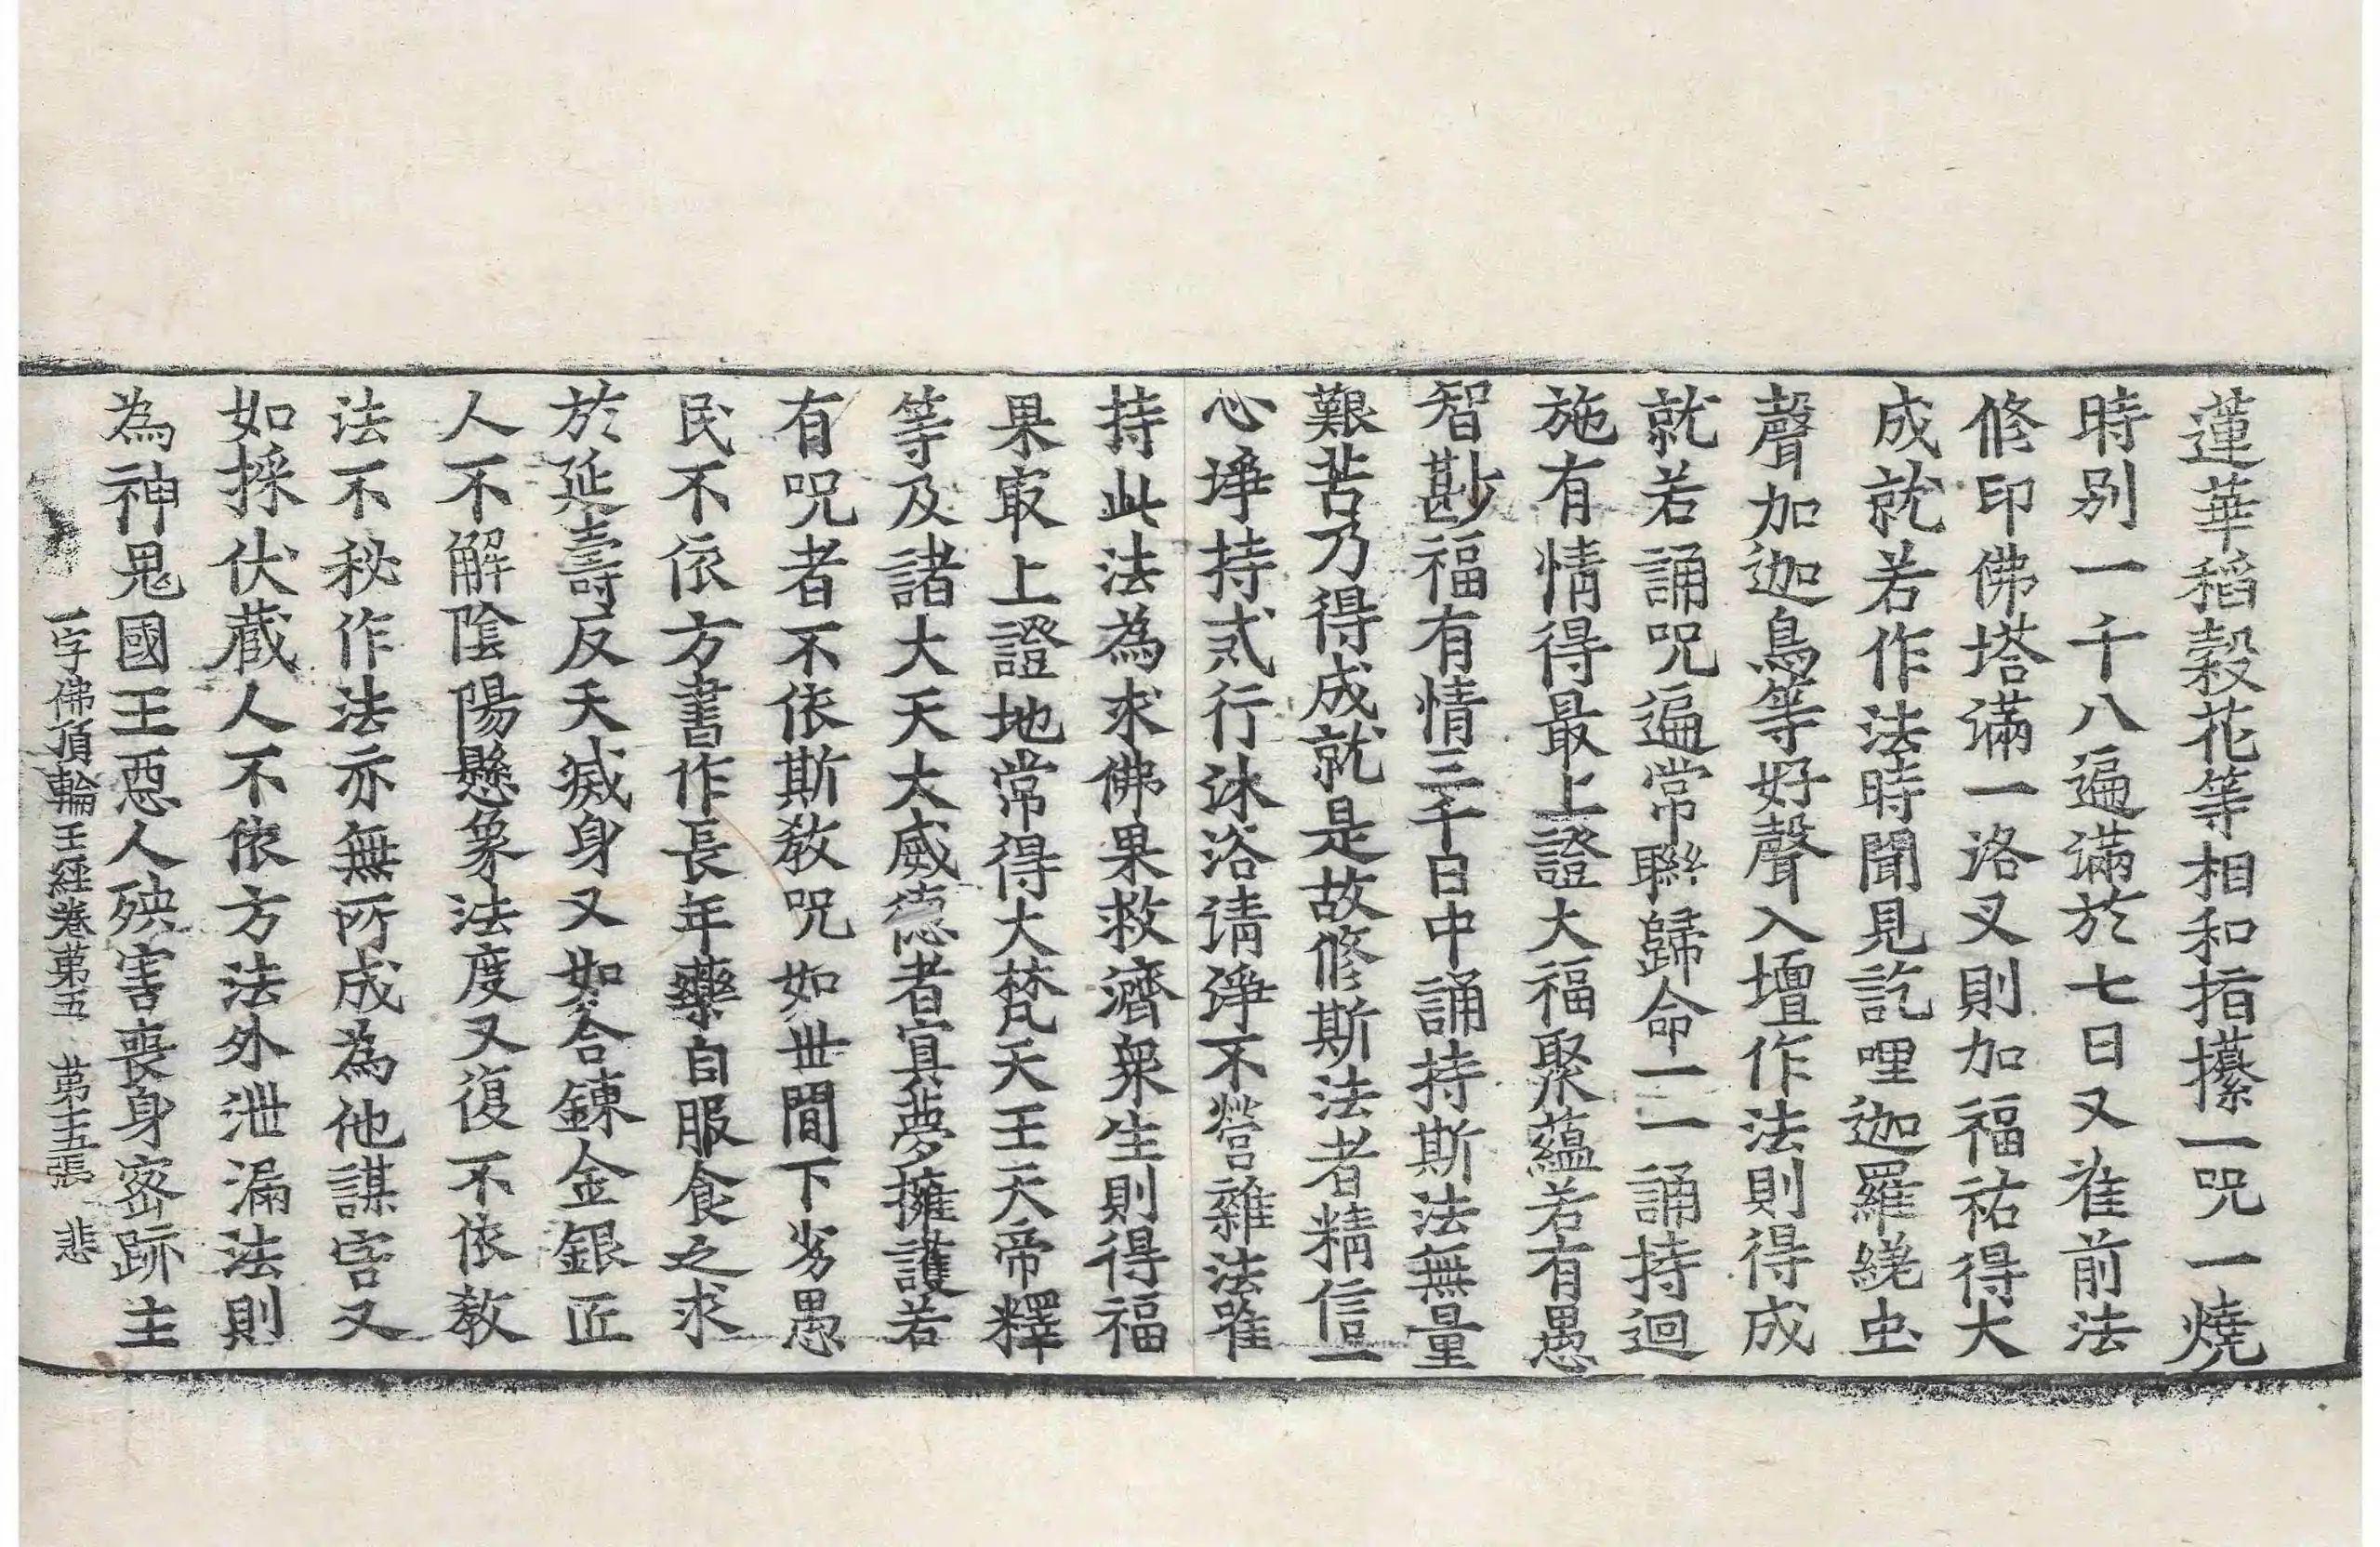 蓮華稻穀花等相和指攥一呪一燒
時別一千八遍滿於七日又准前法
修印佛塔滿一洛叉則加福祐得大
成就若作法時聞見訖哩迦羅繞虫
聲加迦鳥等好聲入壇作法則得成
就若誦呪遍常聯歸命一一誦持迴
施有情得最上證大福聚蘊若有愚
智尠福有情三千日中誦持斯法無量
艱苦乃得成就是故修斯法者精信一
心埩持貳行沐浴请淨不營雜法唯
持此法為求佛果救濟衆生則得福
果㝡上證地常得大梵天王天帝釋
等及諸大天大威德者寘夢擁護若
有呪者不依斯教呪如世間下劣愚
民不依方書作長年藥自服食之求
於延壽反夭滅身又如合鍊金銀匠
人不解陰陽懸象法度又復不依教
法不秘作法亦無所成為他謀害又
如採伏蔵人不依方法外泄漏法則
為神鬼國王惡人殃害喪身密跡主
一字佛頂輪王經卷第五 第十五張 悲